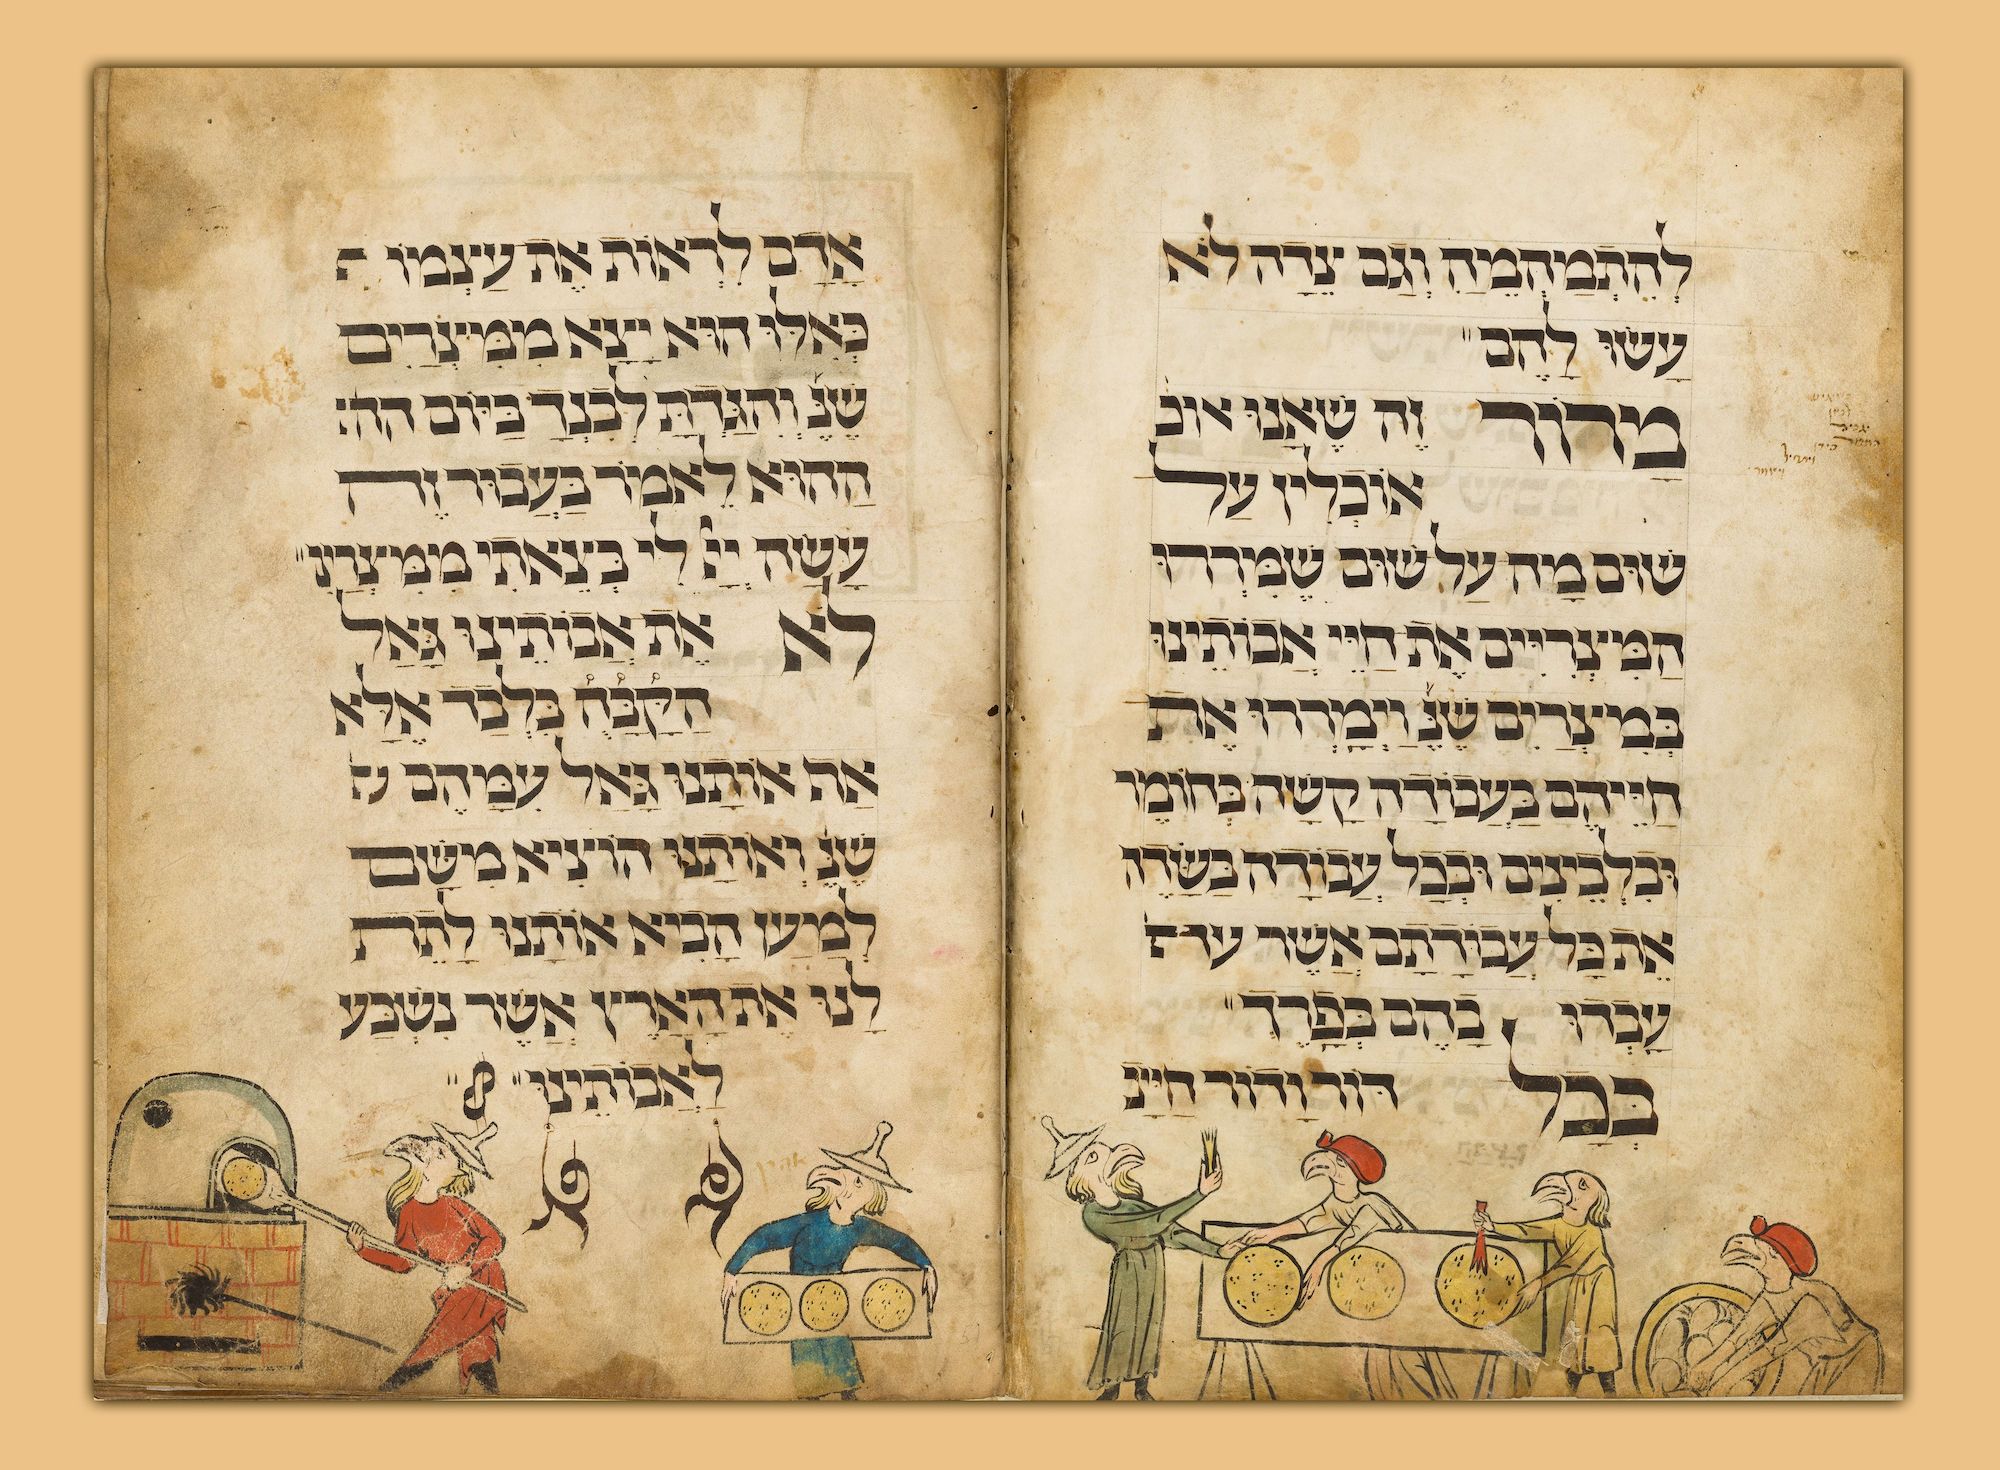 לְהִתְמַהְמֵהַּ וְגַם צֵדָה לֹא
עָשׂוּ לָהֶם"
מָרוֹר זֶה שֶׁאָנוּ אוֹכ
אוֹכְלִין עַל
שׁוּם מָה עַל שׁוּם שֶׁמֵּרְרוּ
הַמִּצְרִיִּים אֶת חַיֵּי אֲבוֹתֵינוּ
בְּמִצְרַיִם שֶׁנֶּ וַיְמָרְרוּ אֶת
חַיֵּיהֶם בַּעֲבוֹדָה קָשָׁה בְּחוֹמֶר
וּבִלְבֵינִים וּבְכָל עֲבוֹדָה בַּשָּׂדֶה
אֵת כָּל עֲבוֹדָתָם אֲשֶׁר
עָבְדוּ בָהֶם בְּפָרֶךְ"
בְּכָל דּוֹר וָדוֹר חַיָּב
אָדָם לִרְאוֹת אֶת עַצְמוֹ
כְּאִלּוּ הוּא יָצָא מִמִּצְרַיִם
שֶׁנֶּ וְהִגַּדְתָּ לְבִנְךָ בַּיּוֹם הה
הַהוּא לֵאמֹר בַּעֲבוּר זֶה
עָשָׂה יְיָ לִי בְּצֵאתִי מִמִּצְרַיִם"
לֹא אֶת אֲבוֹתֵינוּ גָּאַל
הַקָּבָּ֯הּ֯ בִּלְבַד אֶלָּא
אַת אוֹתָנוּ גָּאַל עִמָּהֶם
שֶׁנֶּ וְאוֹתָנוּ הוֹצִיא מִשָּׁם
לְמַעַן הָבִיא אוֹתָנוּ לָתֵת
לָנוּ אֶת הָאָרֶץ אֲשֶׁר נִשְׁבַּע
לַאֲבוֹתֵינוּ"